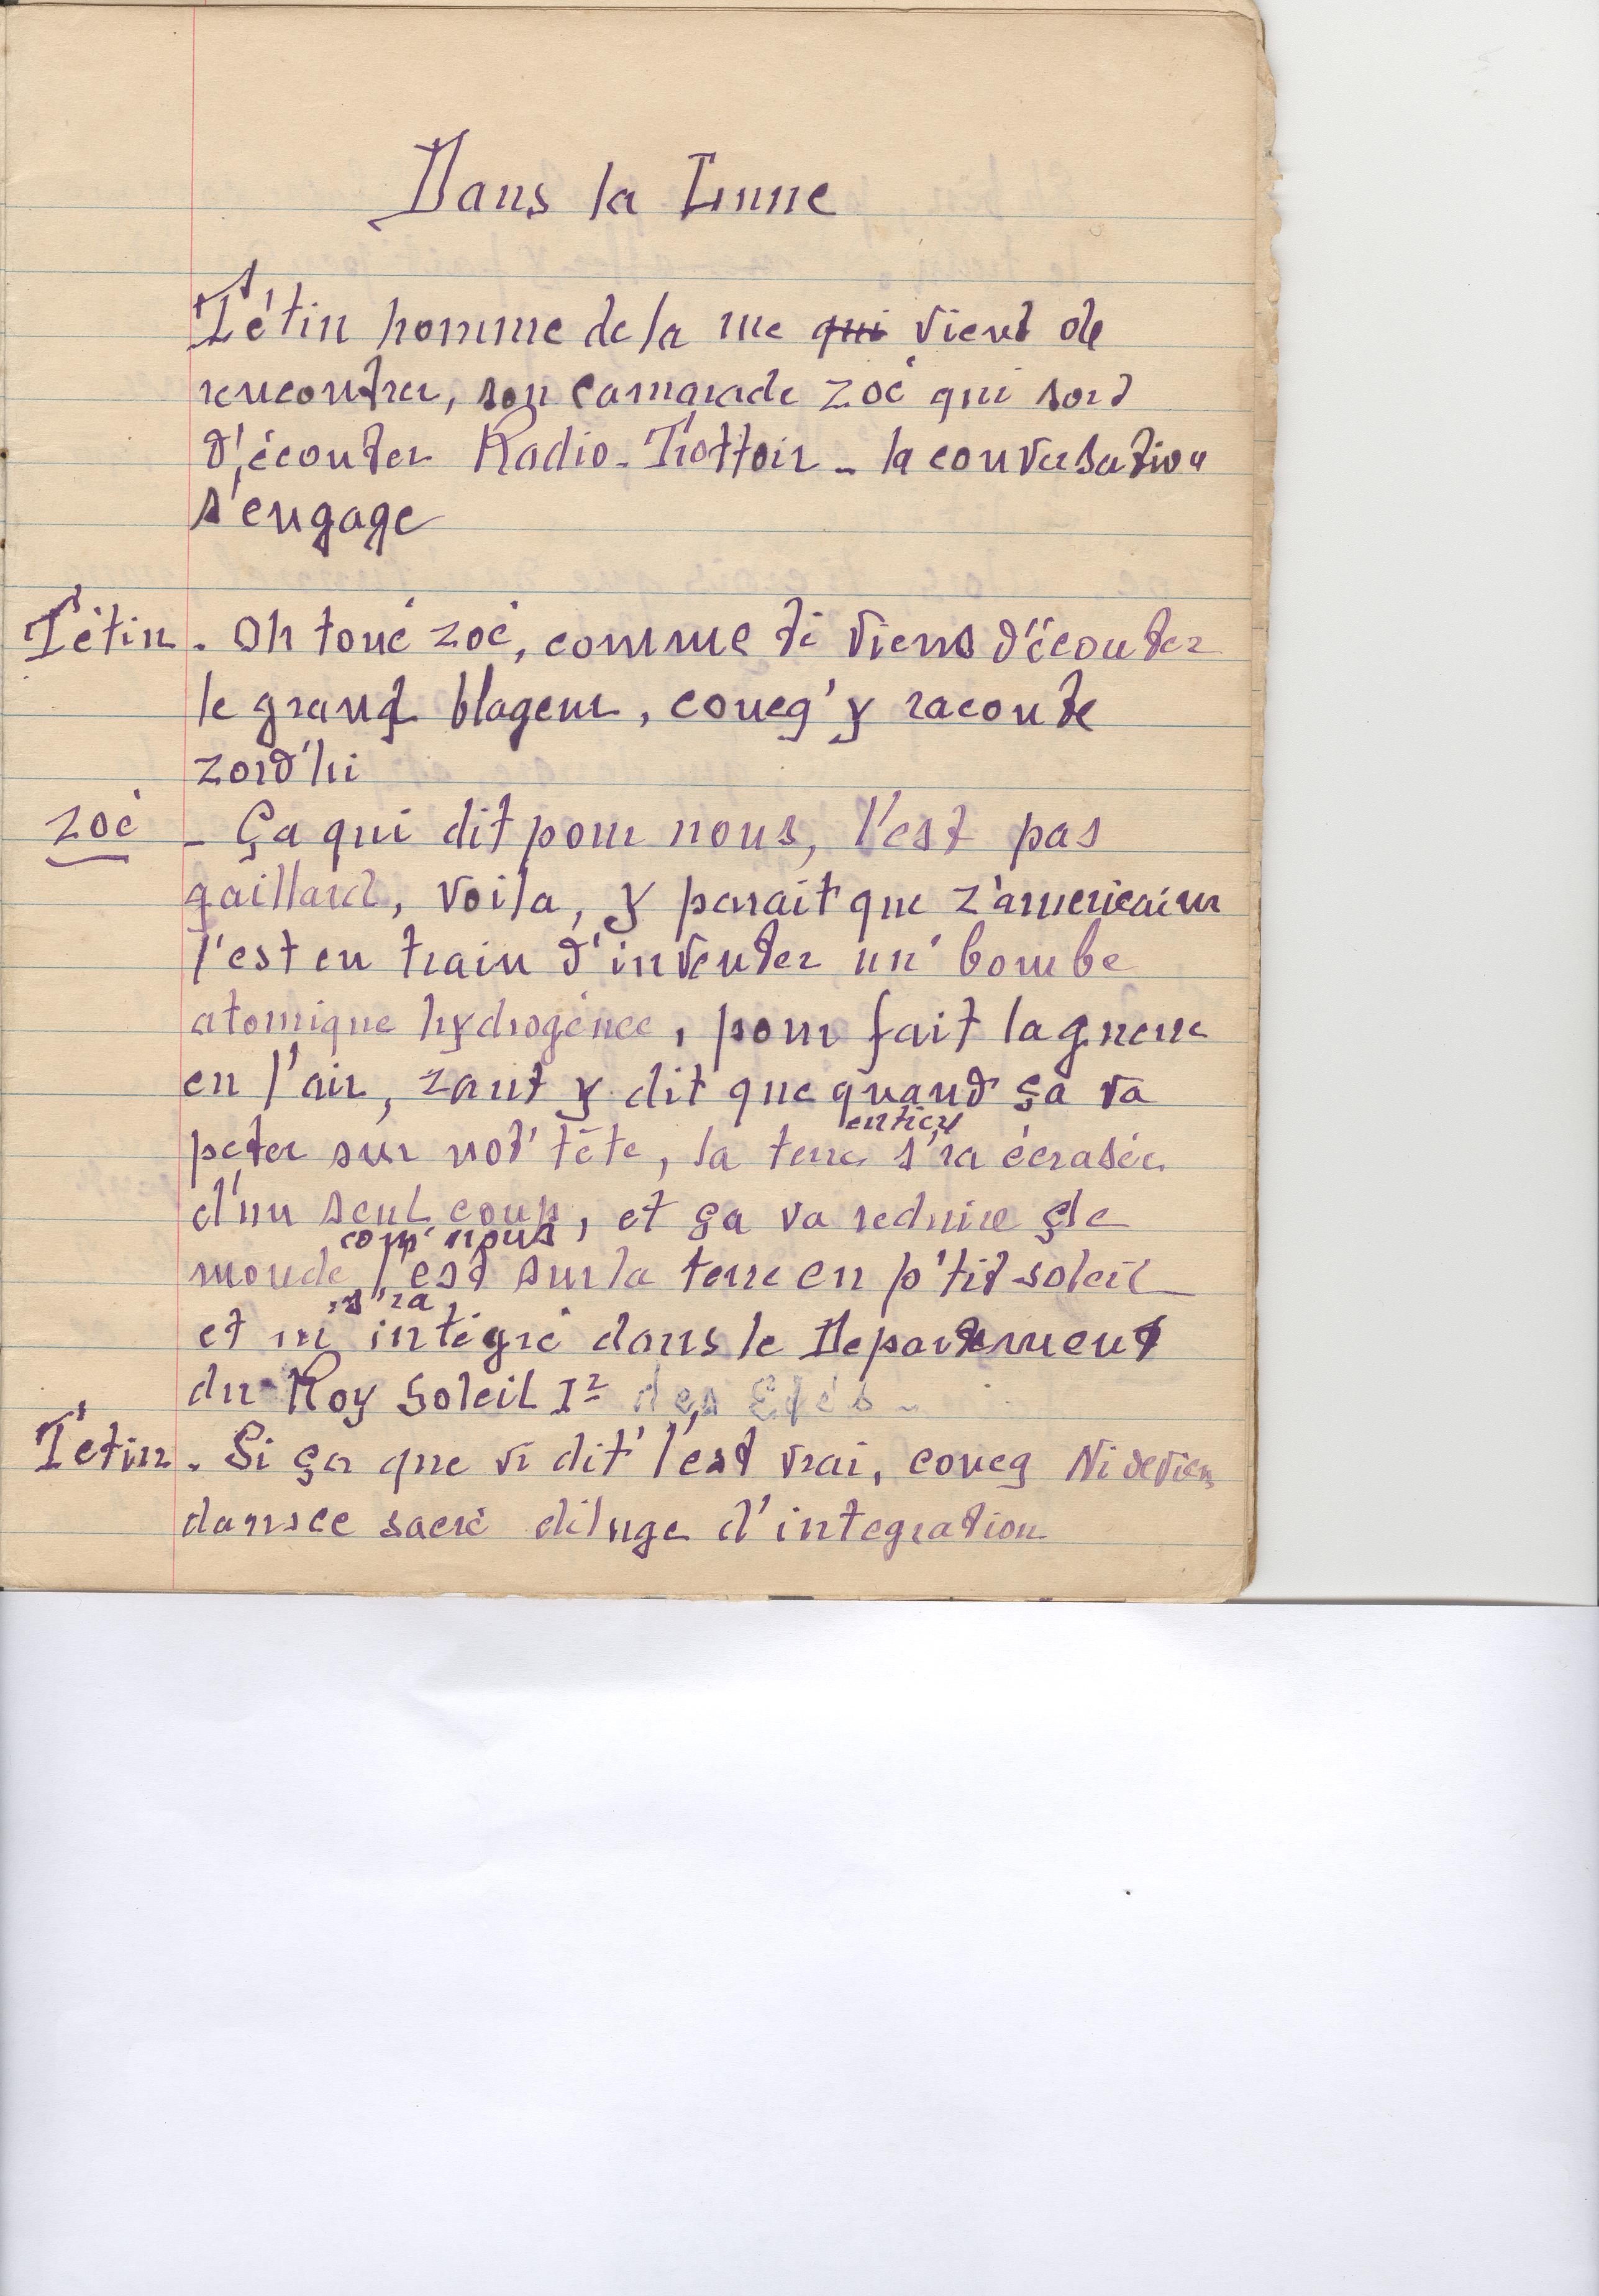 Dans la Lune
Tétin homme de la rue qui vient de
rencontrer, son camarade Zoé qui sort
d'écouter Radio-Trottoir - la conversation
s'engage
Tétin . Oh toué Zoé, comme ti viens d'écouter
le grand blageur, coueq' y raconte
zord'hi
Zoé - Ça qui dit pour nous, l'est pas
gaillard, voila, y parait que z'americains
l'est en train d'inventer un' bombe
atomique hydrogénée, pour fait la guerre
en l'air, zaut y dit que quand ça va
entier
peter sur not' tête, la terre s'ra écrasée
d'un seul coup, et ça va reduire çle
com' nous
monde l'est sur la terre en p'tit soleil
s'ra
et intégré dans le Departement
du Roy Soleil Ier des Etés -
Tétin . Si ça que vi dit' l'est vrai, coueq Ni devien
dans ce sacré déluge d'integration